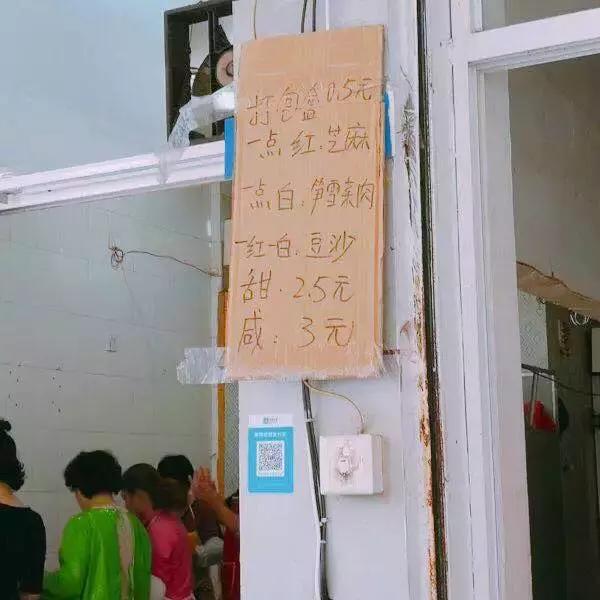 打包盒0.5元
一点红:芝麻
一点白:笋雪菜肉
一红一白:豆沙
甜:2.5元
咸:3元